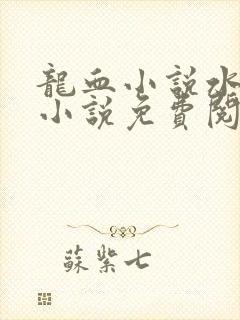 龍血小說水
小說免費閱
蘇紫七